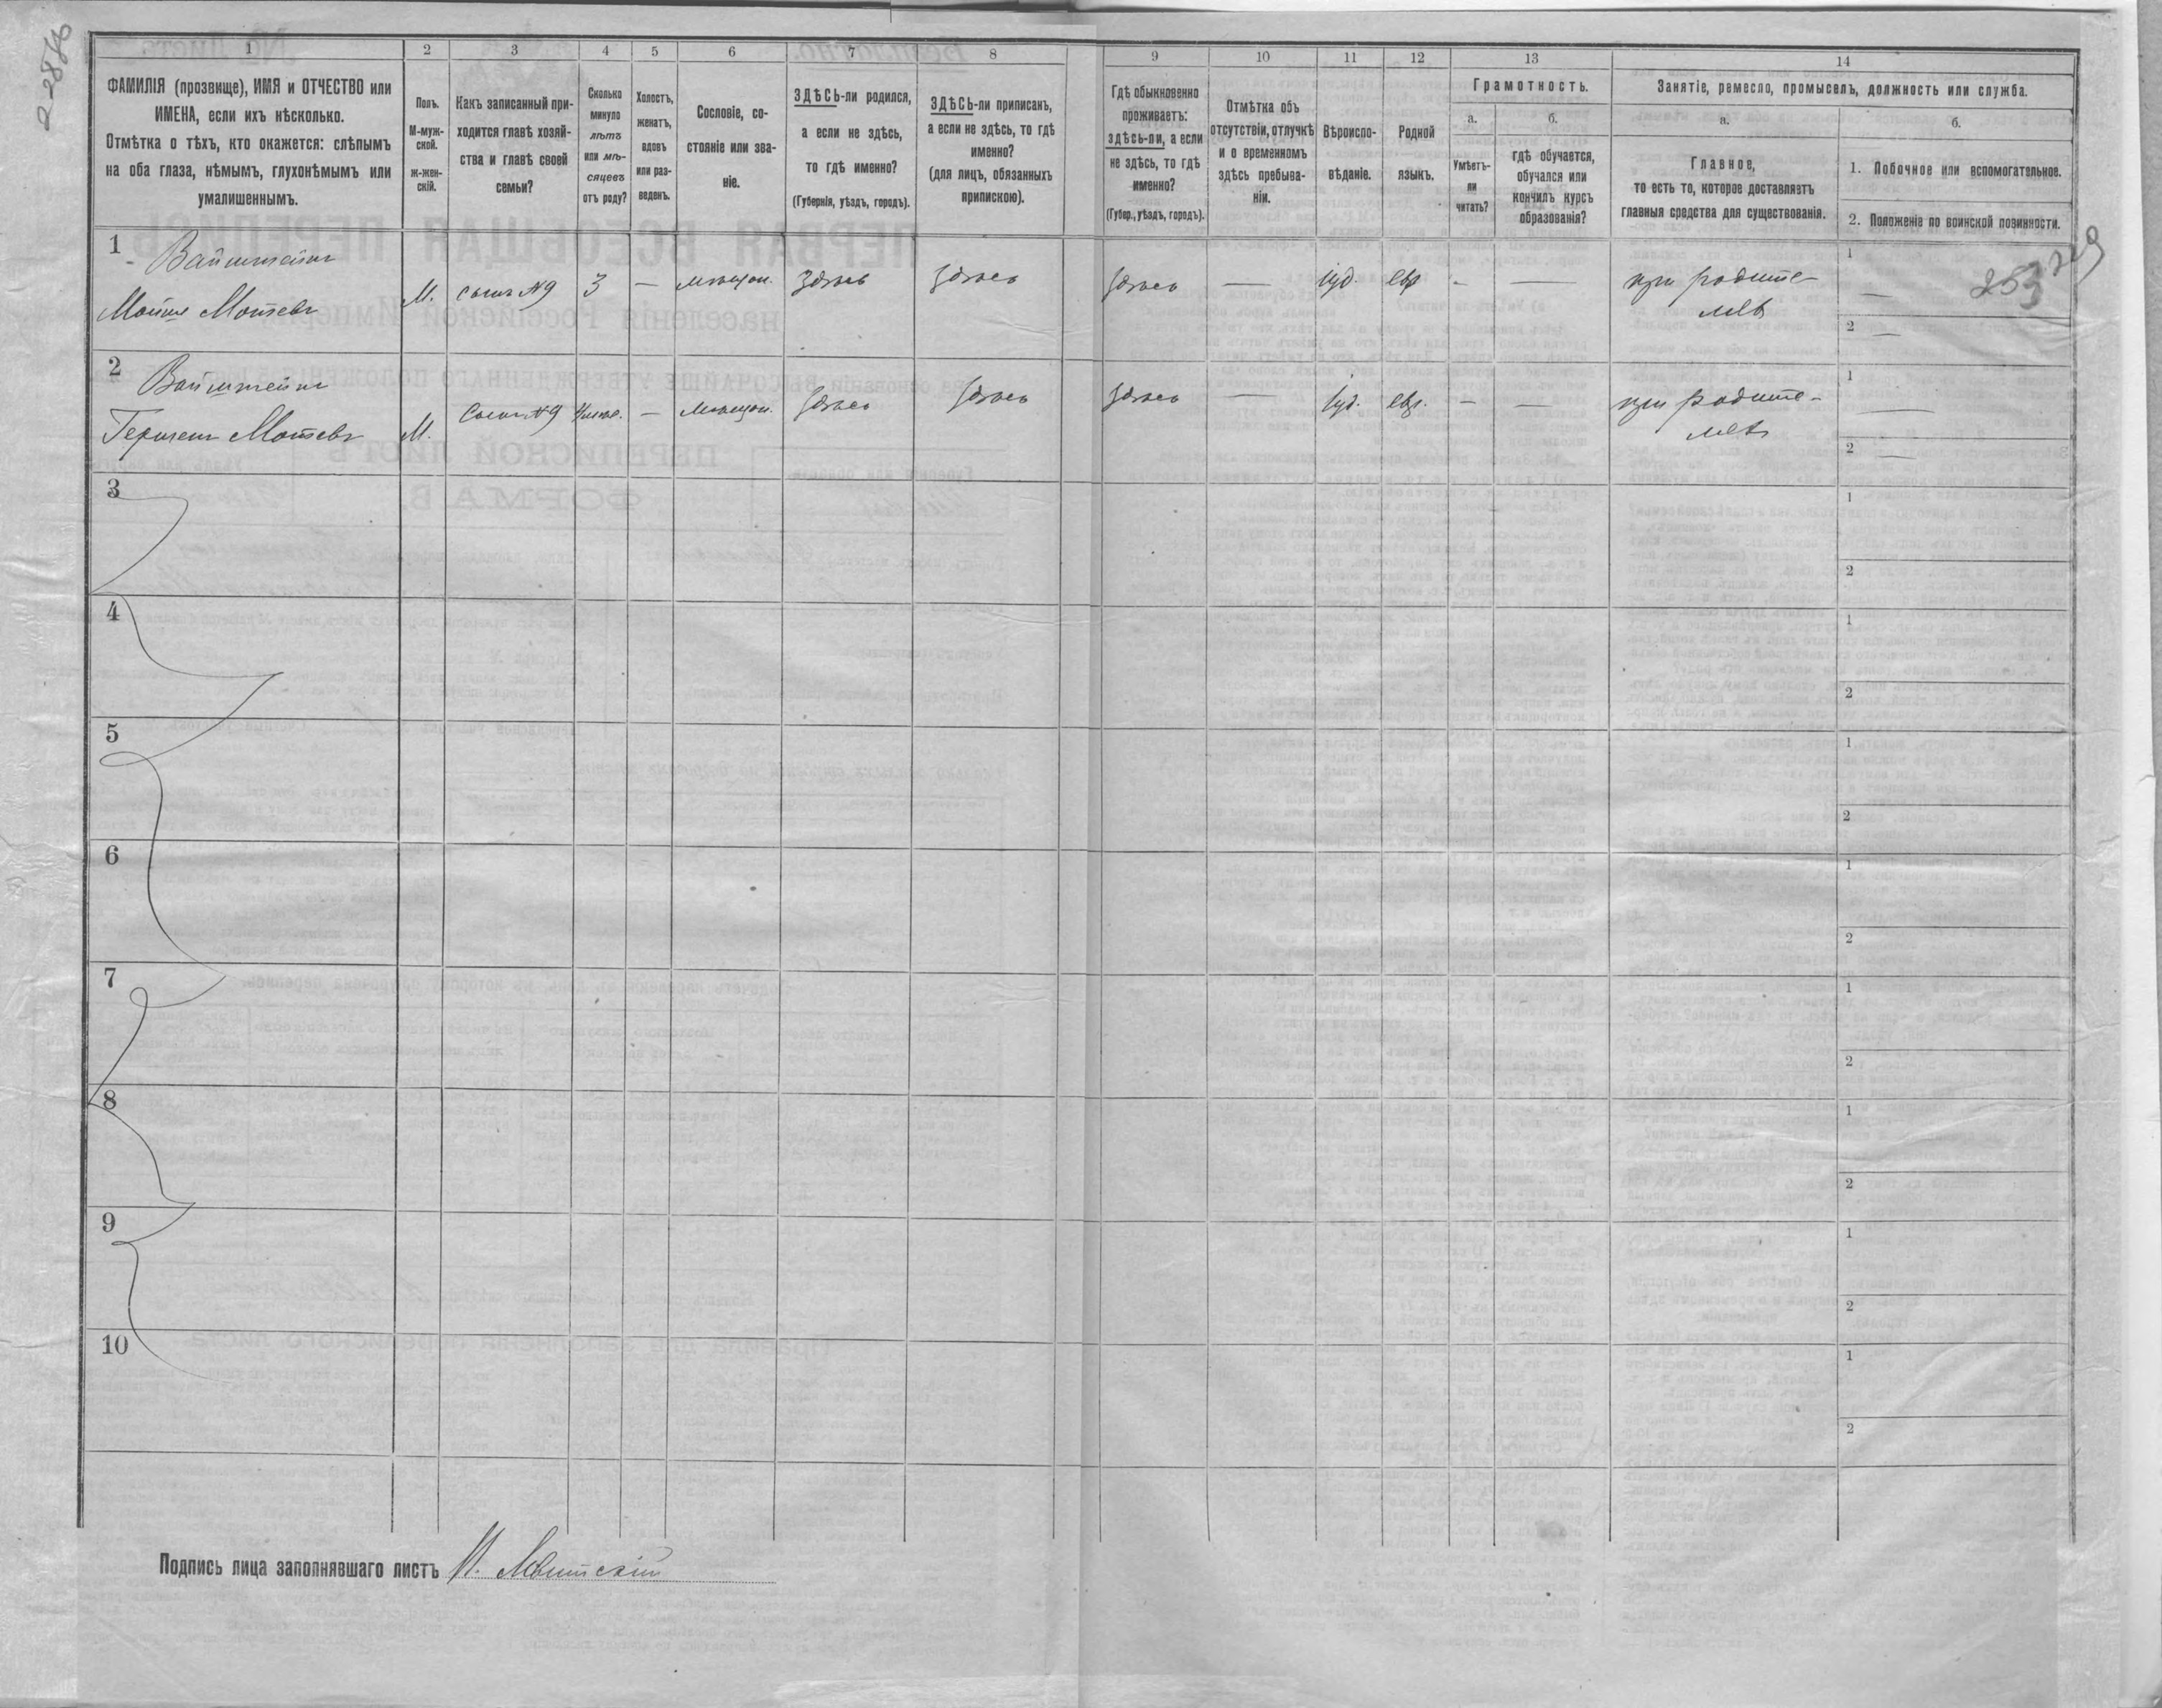 2-2876
1 2 3 4 5 6 7 8 9 10 11 12 13 14
ФАМИЛІЯ (прозвище), ИМЯ и ОТЧЕСТВО или
ИМЕНА, если ихъ нѣсколько.
Отмѣтка о тѣхъ, кто окажется: слѣпымъ
на оба глаза, нѣмымъ, глухонѣмымъ или
умалишеннымъ.
Полъ.
М-муж-
ской.
ж-жен-
скій.
Какъ записанный при-
ходится главѣ хозяй-
ства и главѣ своей
семьи?
Сколько
минуло
лѣтъ
или мѣ-
сяцевъ
отъ роду?
Холостъ,
женатъ,
вдовъ
или раз-
веденъ.
Сословіе, со-
стояніе или зва-
ніе.
ЗДѢСЬ-ли родился,
а если не здѣсь,
то гдѣ именно?
(Губернія, уѣздъ, городъ).
ЗДѢСЬ-ли приписанъ,
а если не здѣсь, то гдѣ
именно?
(для лицъ, обязанныхъ
припискою).
Гдѣ обыкновенно
проживаетъ:
здѣсь-ли, а если
не здѣсь, то гдѣ
именно?
(Губер., уѣздъ, городъ).
Отмѣтка объ
отсутствіи, отлучкѣ
и о временномъ
здѣсь пребыва-
ніи.
Вѣроиспо-
вѣданіе.
Родной
языкъ.
Грамотность.
а.
Умѣетъ-
ли
читать?
б.
гдѣ обучается,
обучался или
кончилъ курсъ
образованія?
Занятіе, ремесло, промыселъ, должность или служба.
а.
Главное,
то есть то, которое доставляетъ
главныя средства для существованія.
б.
1. Побочное или вспомогательное.
2. Положеніе по воинской повинности.
1 Вайнштейнъ
Мойше Мотевъ М. сынъ №9 3 — мѣщан. здѣсь здѣсь здѣсь — іуд. евр. - — при родите-
лѣ
1 —
2 —
2 Вайнштейнъ
Гершенъ Мотевъ М. Сынъ №9 — мѣщан. здѣсь здѣсь здѣсь — іуд. евр. — — при родите-
лѣ
1 —
2 —
3 1
2
4 1
2
5 1
2
6 1
2
7 1
2
8 1
2
9 1
2
10 1
2
Подпись лица заполнявшаго листъ